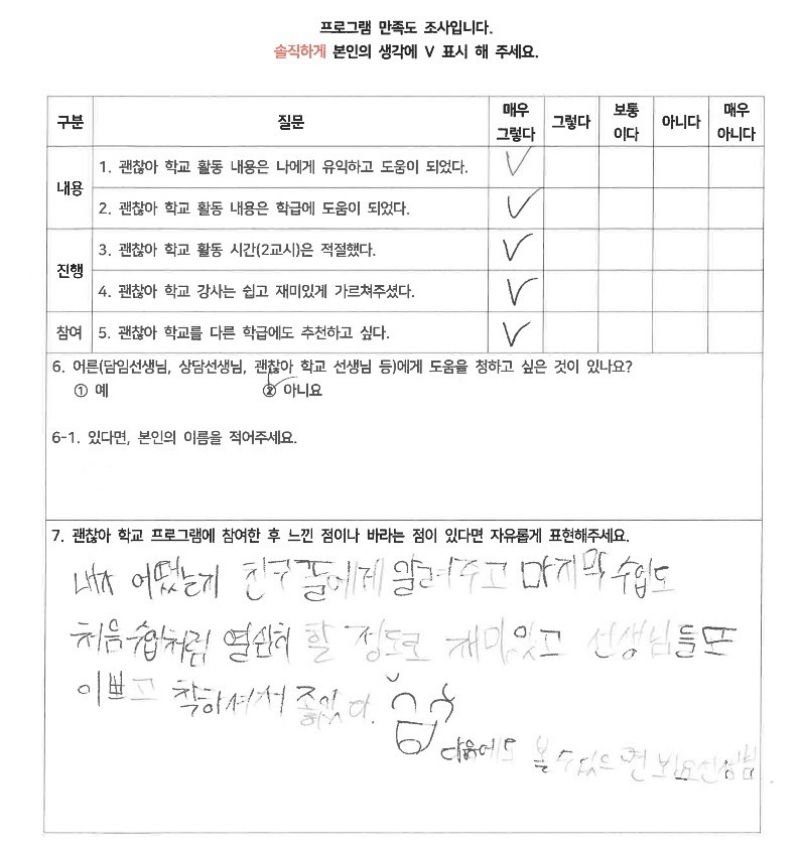 프로그램 만족도 조사입니다.
솔직하게 본인의 생각에 V 표시 해 주세요.
구분 질문 매우 그렇다 그렇다 보통 이다 아니다 매우 아니다
내용 1. 괜찮아 학교 활동 내용은 나에게 유익하고 도움이 되었다. V
2. 괜찮아 학교 활동 내용은 학급에 도움이 되었다. V
진행 3. 괜찮아 학교 활동 시간(2교시)은 적절했다. V
4. 괜찮아 학교 강사는 쉽고 재미있게 가르쳐주셨다. V
참여 5. 괜찮아 학교를 다른 학급에도 추천하고 싶다. V
6. 어른(담임선생님, 상담선생님, 괜찮아 학교 선생님 등)에게 도움을 청하고 싶은 것이 있나요?
① 예 ② 아니요
6-1. 있다면, 본인의 이름을 적어주세요.
7. 괜찮아 학교 프로그램에 참여한 후 느낀 점이나 바라는 점이 있다면 자유롭게 표현해주세요.
내가 어땠는지 친구들에게 알려주고 마지막 수업도
처음 수업처럼 열심히 할 정도로 재미있고 선생님들또
이쁘고 착하셔서 좋았다.
다음에도 볼 수 있으면 봐요 선생님